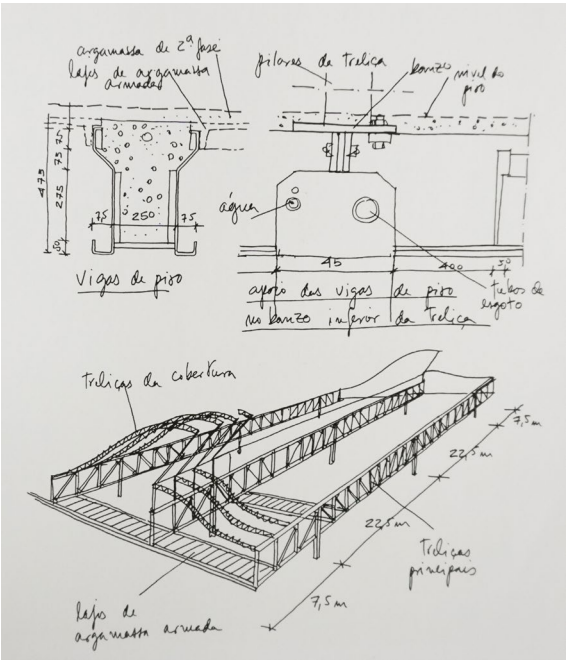 argamassa de 2ª fase
lajes de argamassa
armada
475
75
75
275
50
75
250
75
Vigas de piso
pilares da treliça
banzo
nível do
piso
água
45
400
50
tubos de
esgoto
apoio das vigas de piso
no banzo inferior da treliça
treliças da cobertura
7,5 m
22,5 m
22,5 m
7,5 m
treliças
principais
lajes de
argamassa armada